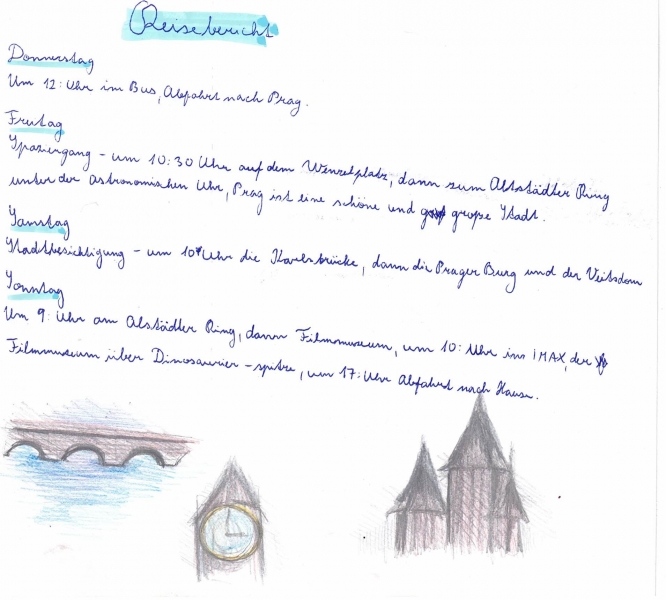 Reisebericht
Donnerstag
Um 12:Uhr im Bus, Abfahrt nach Prag.
Frutag
Spaziergang - um 10:30 Uhr auf dem Wenzelplatz, dann zum Altstädter Ring
unter der astronomischen Uhr, Prag ist eine schöne und große Stadt.
Samstag
Stadtbesichtigung - um 10 Uhr die Karlsbrücke, dann die Prager Burg und der Veitsdom
Sonntag
Um 9:Uhr am Alstädter Ring, dann Filmmuseum, um 10:Uhr ins IMAX, der
Filmmuseum über Dinosaurier - spitze, um 17:Uhr Abfahrt nach Hause.